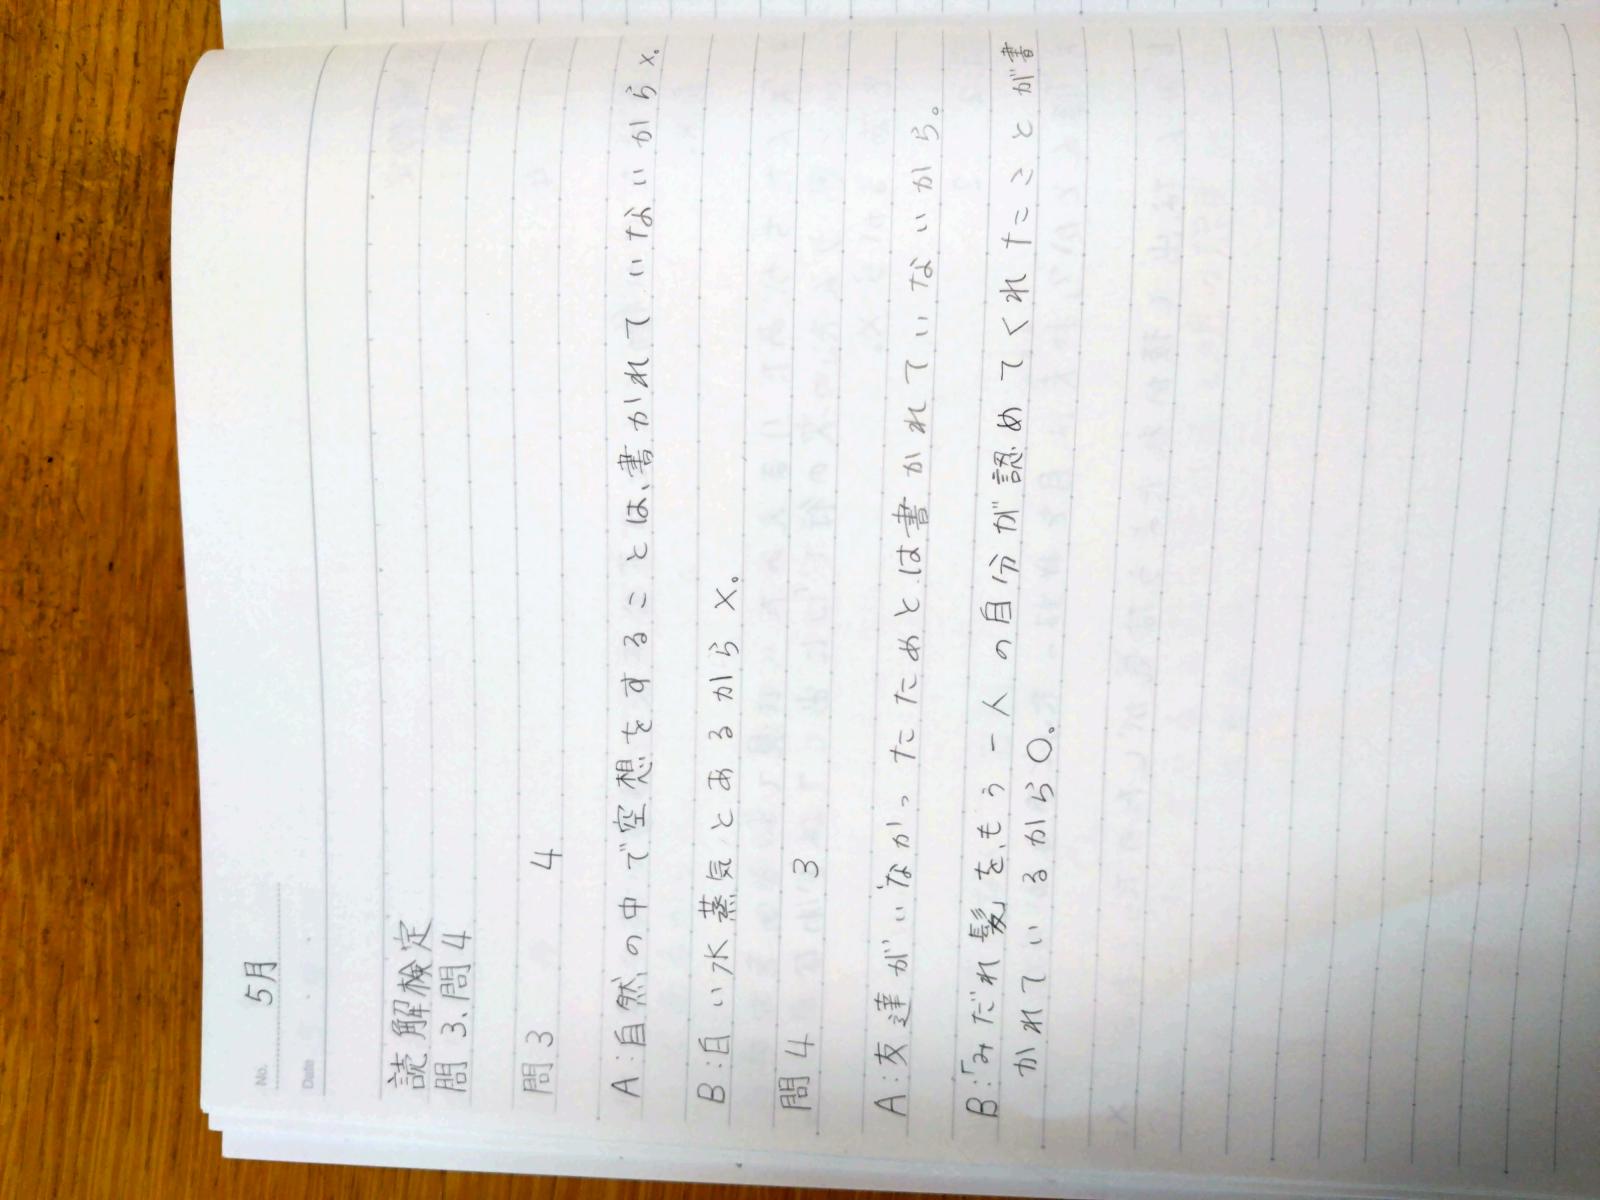 No. 5月
Date
読解検定
問3、問4
問3 4
A:自然の中で空想をすることは、書かれていないから×。
B:白い水蒸気とあるから×。
問4 3
A:友達がいなかったためとは書かれていないから。
B:「みだれ髪」を、もう一人の自分が認めてくれたことが書
かれているから○。